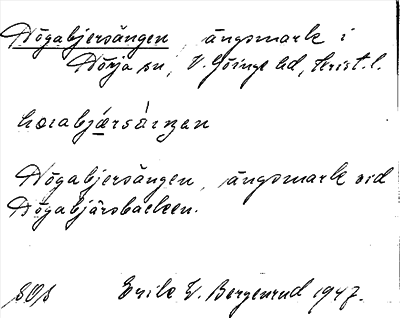 Högabjersängen, ängsmark i
Hörja sn, V. Göinge hd, Krist. l.
Högabjersängen, ängsmark vid
Högabjärsbacken.
Erik W. Bergenrud 1947.